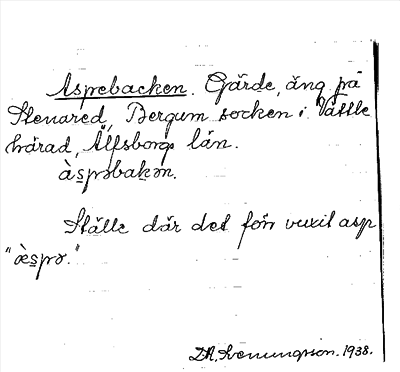 Aspebacken. Gärde, äng på
Stenared, Bergum socken i Vättle
härad, Älfsborgs län.
àspəbakən.
Ställe där det förr vuxit asp
"æ̀spər."
1938.